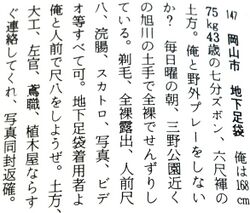 147 岡山市 地下足袋 俺は168cm
75kg43歳の七分ズボン、六尺褌の
土方。俺と野外プレーをしない
か? 毎日曜の朝、三野公園近く
の旭川の土手で全裸でせんずりし
ている。剃毛、全裸露出、人前尺
八、浣腸、スカトロ、写真、ビデ
オ等すべて可。地下足袋着用者よ
俺と人前で尺八をしようぜ。土方、
大工、左官、鳶職、植木屋ならす
ぐ連絡してくれ、写真同封返確。